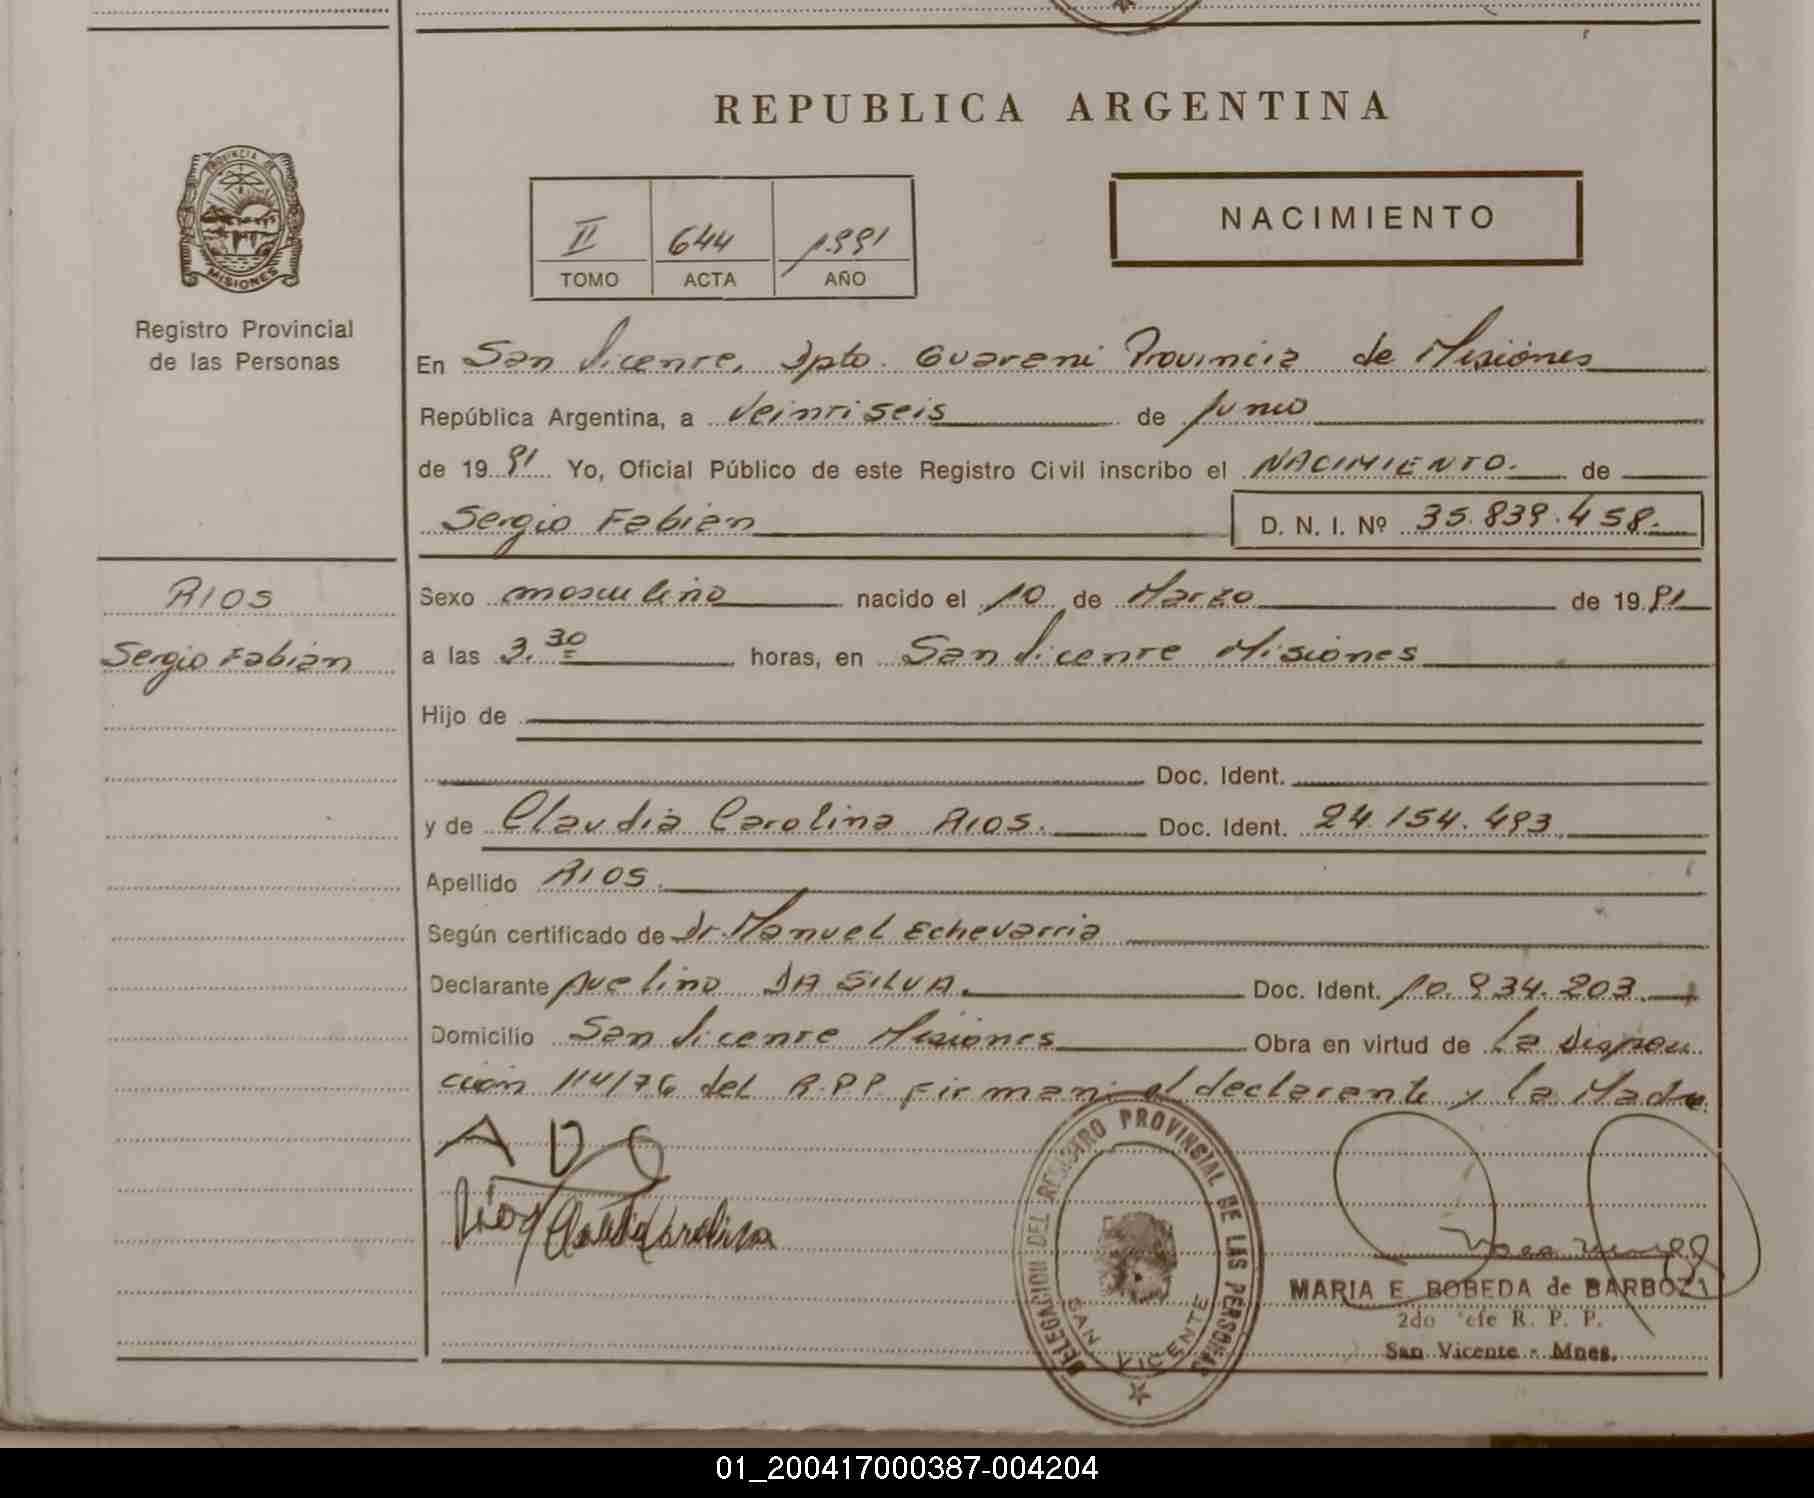 REPUBLICA ARGENTINA
PROVINCIA DE
MISIONES
Registro Provincial
de las Personas
II 644 1.991
TOMO ACTA AÑO
NACIMIENTO
En San Vicente, Dpto. Guarani Provincia de Misiones
República Argentina, a Veintiseis de Junio
de 1991 Yo, Oficial Público de este Registro Civil inscribo el NACIMIENTO. de
Sergio Fabian D. N. I. Nº 35.839.458.
RIOS
Sergio Fabian
Sexo masculino nacido el 10 de Marzo de 1991
a las 3.30 horas, en San Vicente Misiones
Hijo de
Doc. Ident.
y de Claudia Carolina RIOS. Doc. Ident. 24.154.493
Apellido RIOS.
Según certificado de Dr. Manuel Echevarria
Declarante Avelino DA SILVA. Doc. Ident. 10.934.203.
Domicilio San Vicente Misiones Obra en virtud de La Disposi
ción 114/76 del R.P.P. Firman: el declarante y la Madre.
A D
Rios Claudia Carolina
DELEGACION DEL REGISTRO PROVINSIAL DE LAS PERSONAS
SAN VICENTE
MARIA E. BOBEDA de BARBOZA
2do Jefe R. P. P.
San Vicente - Mnes.
01_200417000387-004204